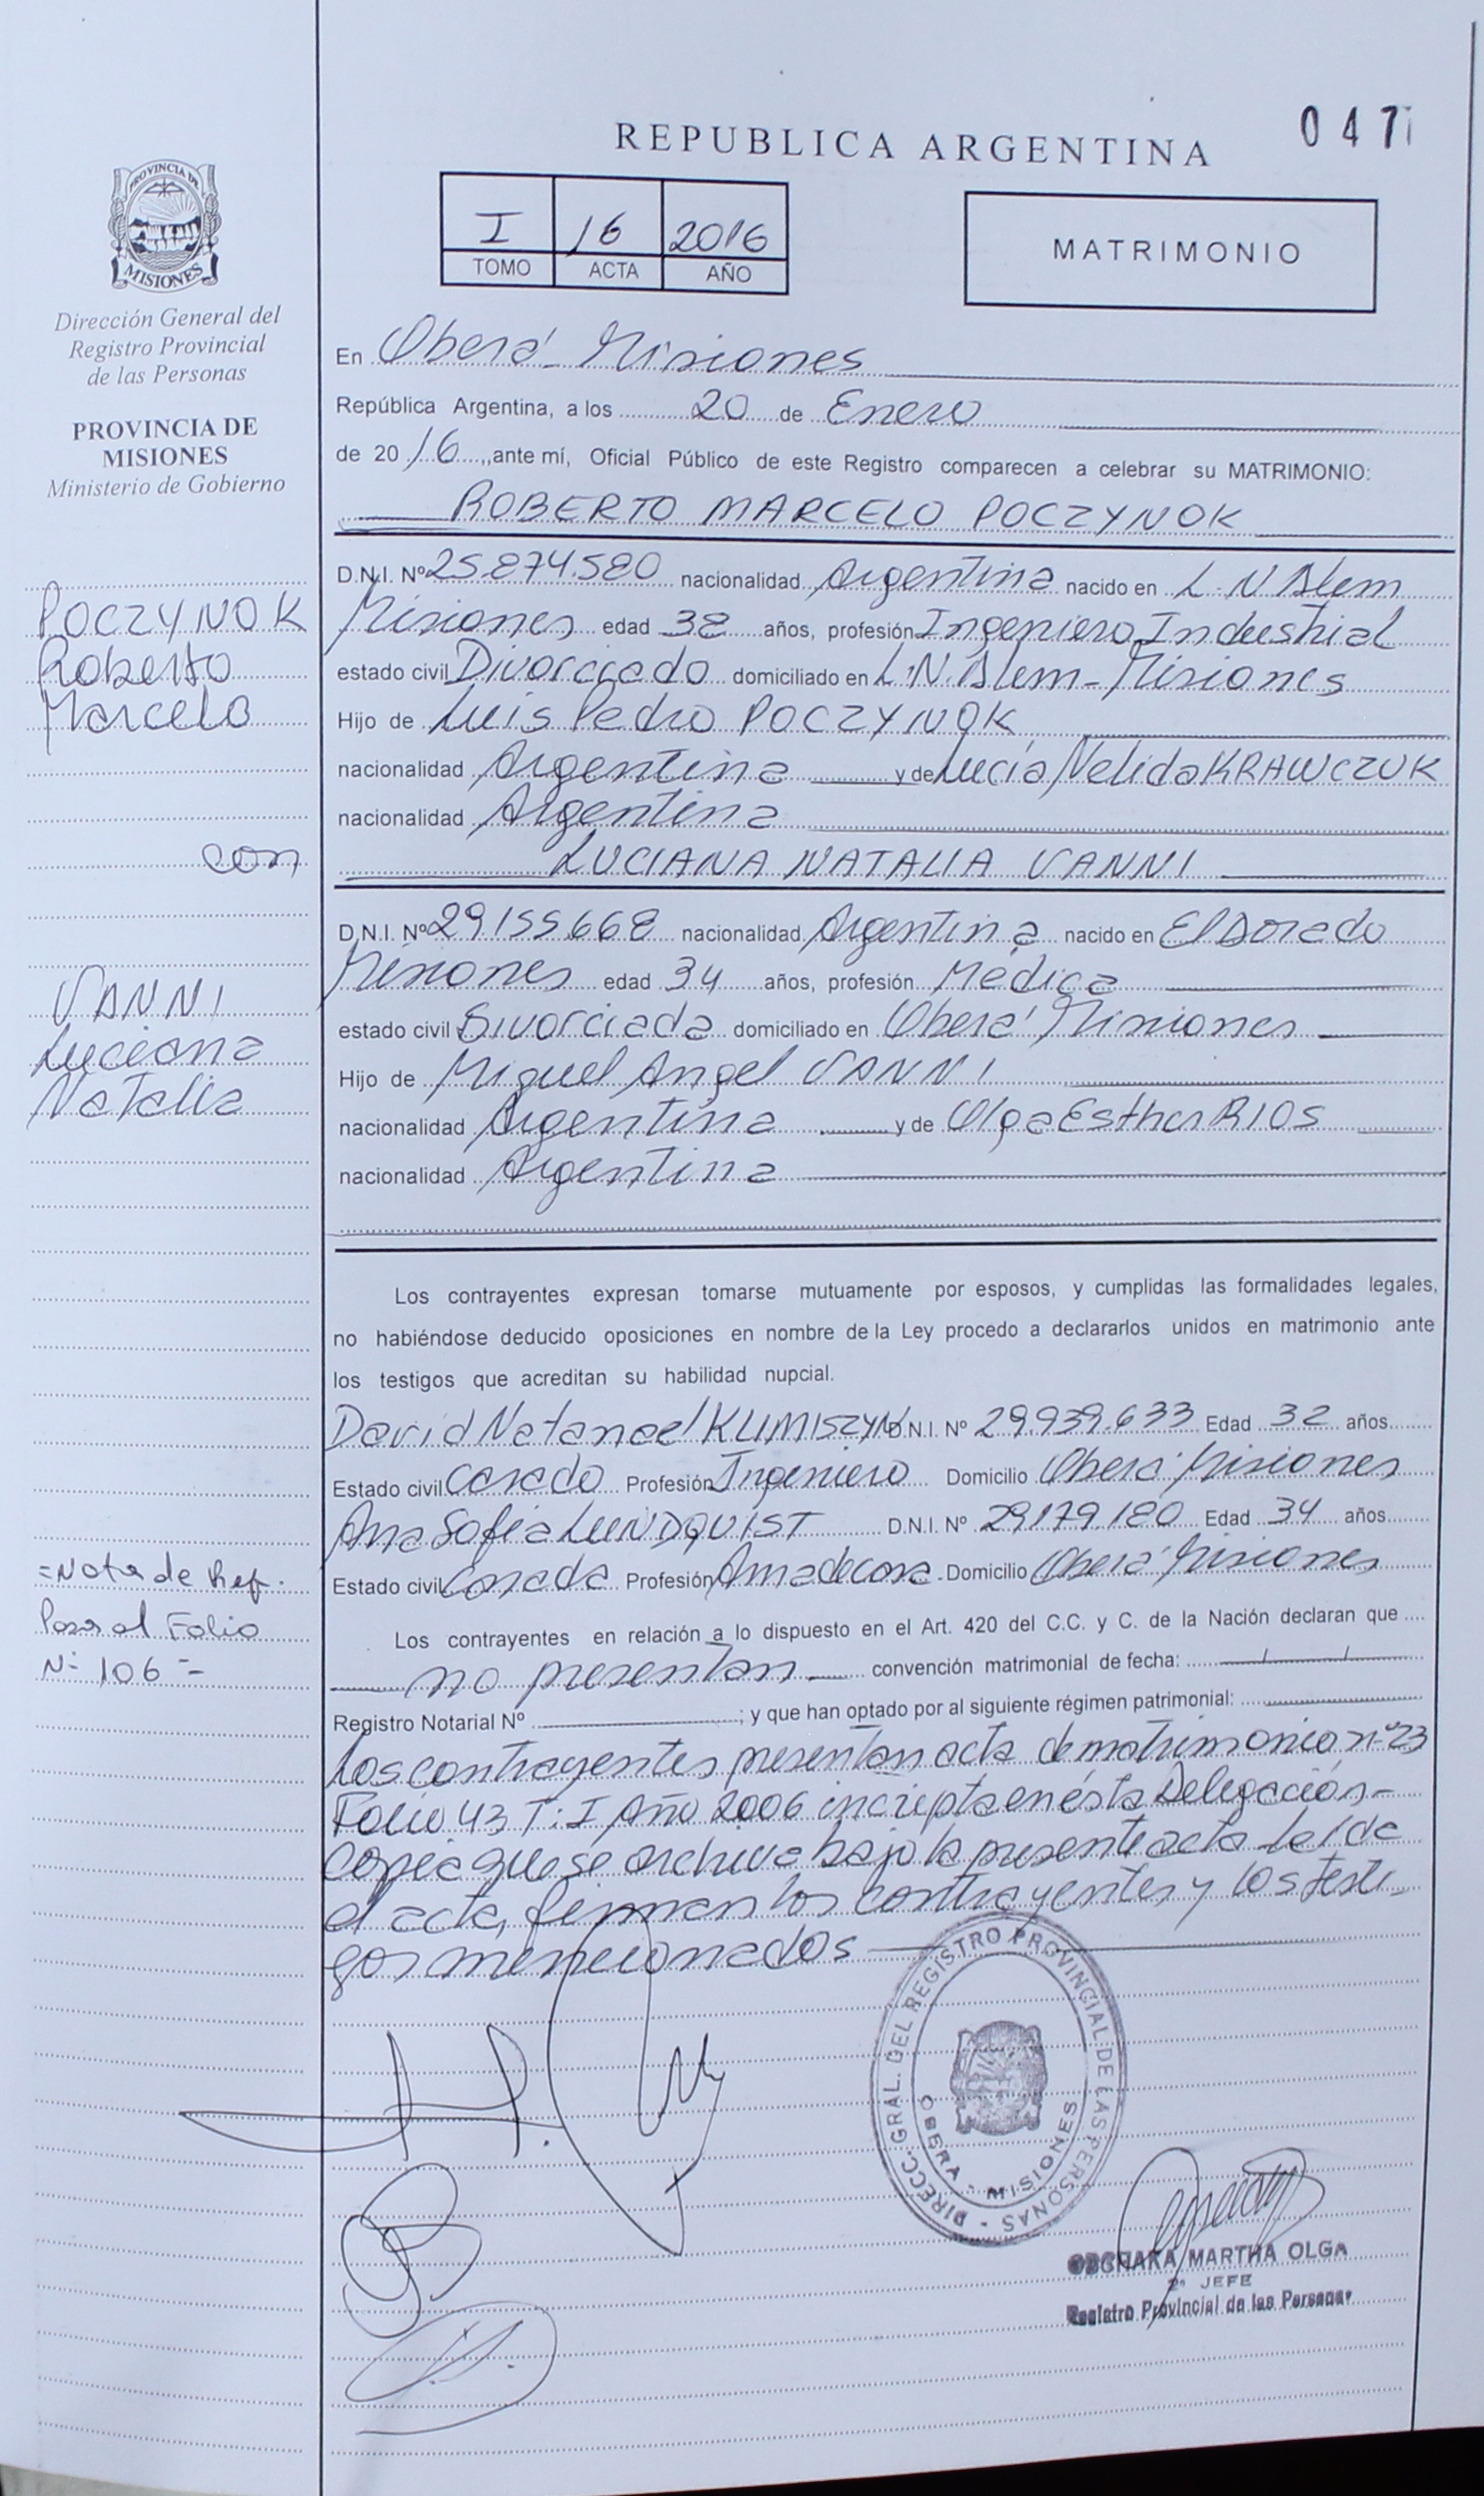 REPUBLICA ARGENTINA
047
PROVINCIA DE
MISIONES
Dirección General del
Registro Provincial
de las Personas
PROVINCIA DE
MISIONES
Ministerio de Gobierno
I 16 2016
TOMO ACTA AÑO
MATRIMONIO
En Oberá - Misiones
República Argentina, a los 20 de Enero
de 2016, ante mí, Oficial Público de este Registro comparecen a celebrar su MATRIMONIO:
ROBERTO MARCELO POCZYNOK
D.N.I. Nº 25.874.580 nacionalidad Argentina nacido en L.N Alem
Misiones edad 38 años, profesión Ingeniero Industrial
estado civil Divorciado domiciliado en L.N. Alem - Misiones
Hijo de Luis Pedro POCZYNOK
nacionalidad Argentina y de Lucía Nelida KRAWCZUK
nacionalidad Argentina
LUCIANA NATALIA VANNI
D.N.I. Nº 29.155.668 nacionalidad Argentina nacido en El Dorado
Misiones edad 34 años, profesión Médica
estado civil Divorciada domiciliado en Oberá Misiones
Hijo de Miguel Angel VANNI
nacionalidad Argentina y de Olga Esther RIOS
nacionalidad Argentina
Los contrayentes expresan tomarse mutuamente por esposos, y cumplidas las formalidades legales,
no habiéndose deducido oposiciones en nombre de la Ley procedo a declararlos unidos en matrimonio ante
los testigos que acreditan su habilidad nupcial.
David Natanael KLIMISZYN D.N.I. Nº 29.939.633 Edad 32 años
Estado civil Casado Profesión Ingeniero Domicilio Oberá Misiones
Ana Sofia LUNDQUIST D.N.I. Nº 29.179.180 Edad 34 años
Estado civil Casada Profesión Ama de casa Domicilio Oberá Misiones
Los contrayentes en relación a lo dispuesto en el Art. 420 del C.C. y C. de la Nación declaran que
no presentan convención matrimonial de fecha: / /
Registro Notarial Nº ; y que han optado por al siguiente régimen patrimonial:
Los contrayentes presentan acta de matrimonio nº 23
Folio 43 T: I Año 2006 incripta en ésta Delegación -
copia que se archiva bajo la presente acta leída
el acta, firman los contrayentes y los testi-
gos mencionados
POCZYNOK
Roberto
Marcelo
con
VANNI
Luciana
Natalia
= Nota de Ref.
Pasa al Folio
Nº 106 =
DIRECC. GRAL. DEL REGISTRO PROVINCIAL DE LAS PERSONAS -
OBERA - MISIONES
MARTHA OLGA
2º JEFE
Registro Provincial de las Personas